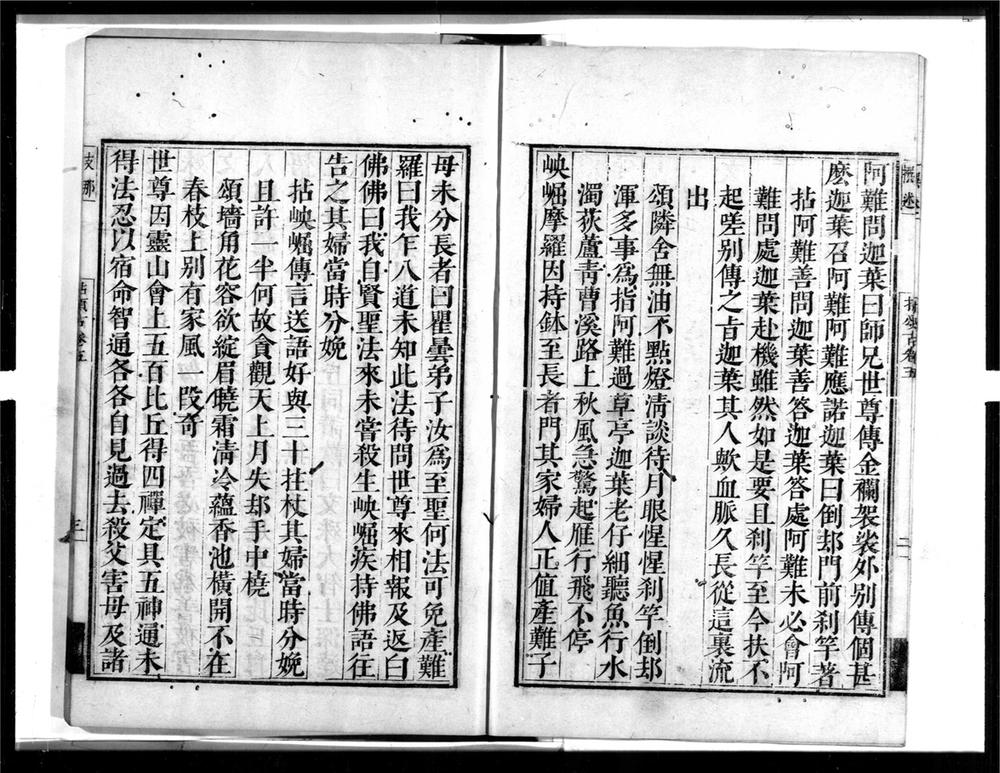 阿難問迦葉曰師兄世尊傳金襴袈裟外别傳個甚
麽迦葉召阿難阿難應諾迦葉曰倒却門前刹竿著
拈阿難善問迦葉善答迦葉答處阿難未必會阿
難問處迦葉赴機雖然如是要且刹竿至今扶不
起嗟别傳之㫖迦葉其人歟血脈久長從這裏流
出
頌隣舍無油不點燈清談待月眼惺惺刹竿倒却
渾多事爲指阿難過草亭迦葉老仔細聽魚行水
濁荻蘆靑曹溪路上秋風急驚起雁行飛不停
㟅崛摩羅因持鉢至長者門其家婦人正值產難子
母未分長者曰瞿曇弟子汝爲至聖何法可免產難
羅曰我乍入道未知此法待問世尊來相報及返白
佛佛曰我自賢聖法來未嘗殺生㟅崛疾持佛語往
告之其婦當時分娩
拈㟅崛傳言送語好與三十拄杖其婦當時分娩
且許一半何故貪觀天上月失却手中橈
頌墻角花容欲綻眉曉霜清冷蘊香池橫開不在
春枝上别有家風一段奇
世尊因靈山會上五百比丘得四禪定具五神通未
得法忍以宿命智通各各自見過去殺父害母及諸
拈頌古卷五
三